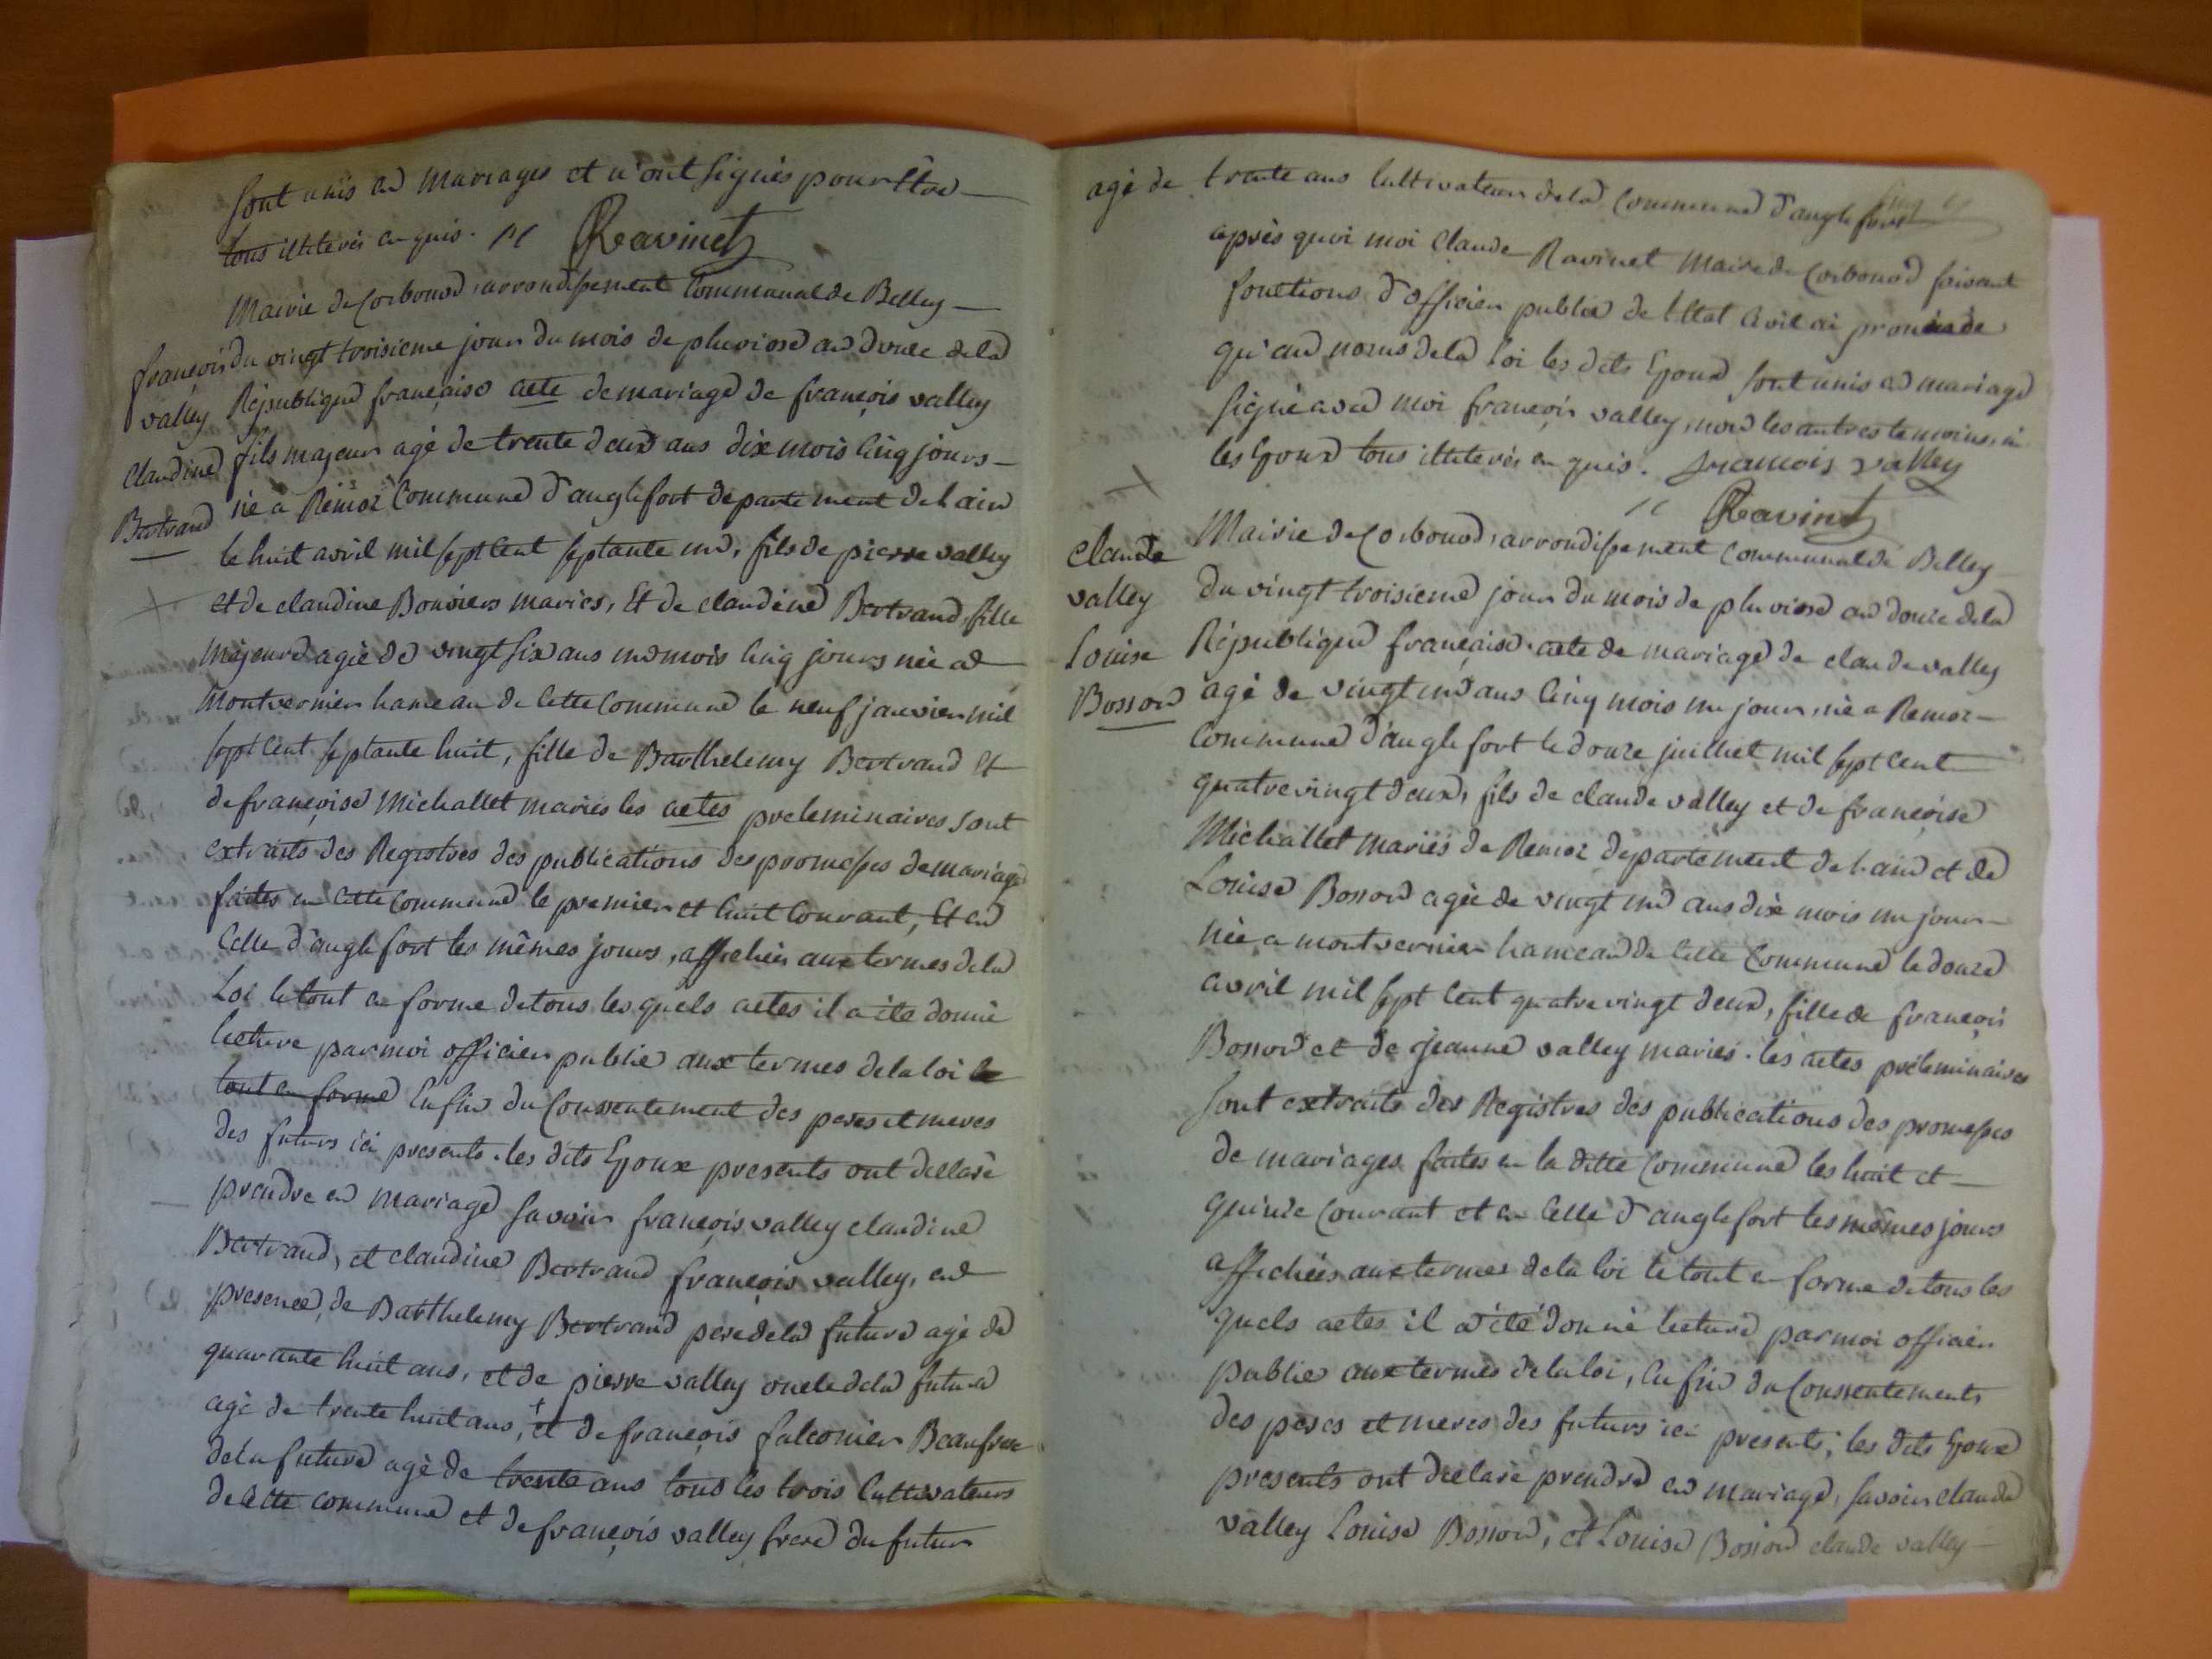 sont unis en mariages et n'ont signés pour être
tous illiterés enquis. Ravinet
Mairie de Corbonod, arrondissement Communal de Belley
françois
valley
Claudine
Bertrand
du vingt troisieme jour du mois de pluviose an douze de la
République française acte de mariage de françois valley
fils majeur agé de trente deux ans dix mois cinq jours
né a Remoz Commune d'anglefort departement de l'ain
le huit avril mil sept cent septante un, fils de pierre valley
et de claudine Bouviers mariés, Et de claudine Bertrand, fille
majeure agée de vingt six ans un mois cinq jours née a
Montvernier hameau de Cette Commune le neuf janvier mil
sept cent septante huit, fille de Barthelemy Bertrand Et
de françoise Michallet mariés les actes preleminaires sont
extraits des Registres des publications des promesses de mariage
faites en Cette Commune le premier et huit Courant, Et en
Celle d'anglefort les mêmes jours, affichées aux termes de la
Loi le tout en forme de tous les quels actes il a été donné
lecture par moi officier public aux termes de la loi le
tout en forme Enfin du Consentement des peres et meres
des futurs ici presents. les dits Epoux presents ont declaré
prendre en mariage savoir françois valley claudine
Bertrand, et claudine Bertrand françois valley, en
presence, de Barthelemy Bertrand pere de la future agé de
quarante huit ans, et de pierre valley oncle de la future
agé de trente huit ans, + et de françois falconier Beaufrere
de la future agé de trente ans tous les trois Cultivateurs
de Cette commune et de françois valley frere du futur
agé de trente ans Cultivateur de la Commune d'anglefort
après quoi moi Claude Ravinet Maire de Corbonod faisant
fonctions d'officier public de l'Etat Civil ai prononcé
qu'au noms de la loi les dits Epoux sont unis en mariage
signé avec moi françois valley, non les autres temoins, ni
les Epoux tous illiterés enquis. françois valley
Ravinet
Mairie de Corbonod, arrondissement Communal de Belley
claude
valley
Louise
Bosson
du vingt troisieme jour du mois de pluviose an douze de la
République française. acte de mariage de claude valley
agé de vingt un ans Cinq mois un jour, né a Remoz
Commune d'anglefort le douze juilliet mil sept Cent
quatrevingt deux, fils de claude valley et de françoise
Michallet mariés de Remoz departement de l'ain et de
Louise Bosson agée de vingt un ans dix mois un jour
née a montvernier hameau de Cette Commune le douze
avril mil sept Cent quatre vingt deux, fille de françois
Bosson et de jeanne valley mariés. les actes préleminaires
sont extraits des Registres des publications des promesses
de mariages faites en la ditte Commune les huit et
quinze Courant et en Celle d'anglefort les mêmes jours
affichées aux termes de la loi le tout en forme de tous les
quels actes il a été donné lecture par moi officier
public aux termes de la loi, Enfin du Consentements
des peres et meres des futurs ici presents, les dits Epoux
presents ont declaré prendre en mariage, savoir claude
valley Louise Bosson, et Louise Bosson claude valley